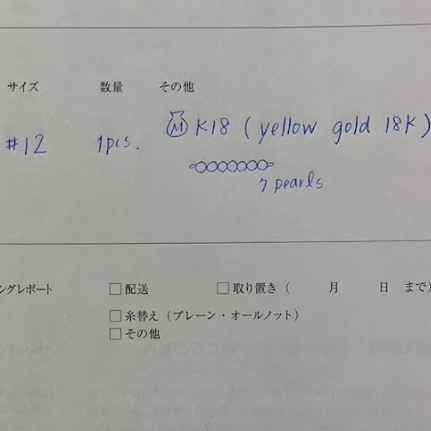 サイズ 数量 その他
#12 1pcs. M K18 (yellow gold 18K)
7 pearls
ングレポート □ 配送 □ 取り置き ( 月 日 まで)
□ 糸替え (プレーン・オールノット)
□ その他